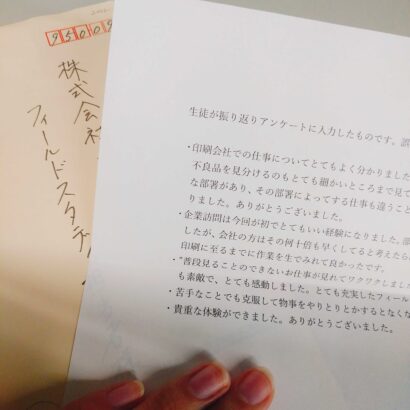 9500
株式会社
フィールドスタディ
生徒が振り返りアンケートに入力したものです。
・印刷会社での仕事についてとてもよく分かりました
不良品を見分けるのもとても細かいところまで見て
な部署があり、その部署によってする仕事も違うこと
りました。ありがとうございました。
・企業訪問は今回が初でとてもいい経験になりました。
したが、会社の方はその何十倍も早くしてると考えたら
印刷に至るまでに作業を生でみれて良かったです。
・"普段見ることのできないお仕事が見れてワクワクしました
も素敵で、とても感動しました。とても充実したフィール
・苦手なことでも克服して物事をやりとりとかするとなくな
・貴重な体験ができました。ありがとうございました。